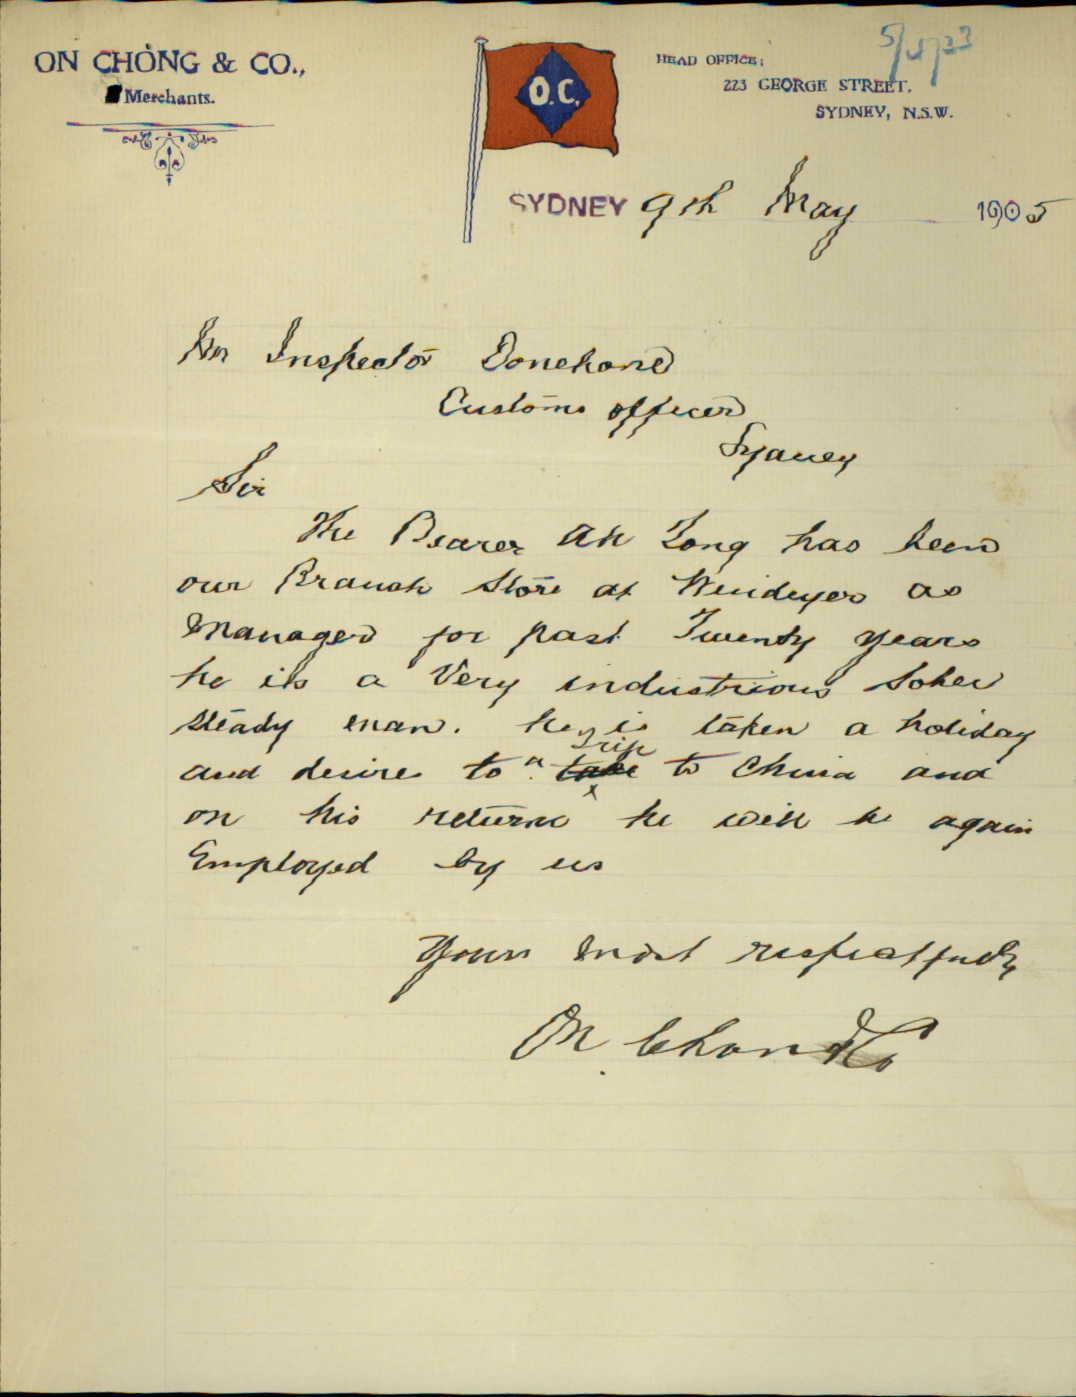 ON CHONG & CO.,
Merchants.
O.C.
HEAD OFFICE:
223 GEORGE STREET,
SYDNEY, N.S.W.
SYDNEY 9th May 1905
Mr Inspector Donohoe
Customs officer
Sydney
Sir
The Bearer Ah Tong has been
our Branch Store at Windeyer as
Manager for past Twenty years
he is a Very industrious Sober
Steady man. he is taken a holiday
and desires to a take trip to China and
on his return he will be again
Employed by us
Yours most respectfully
On Chong & Co